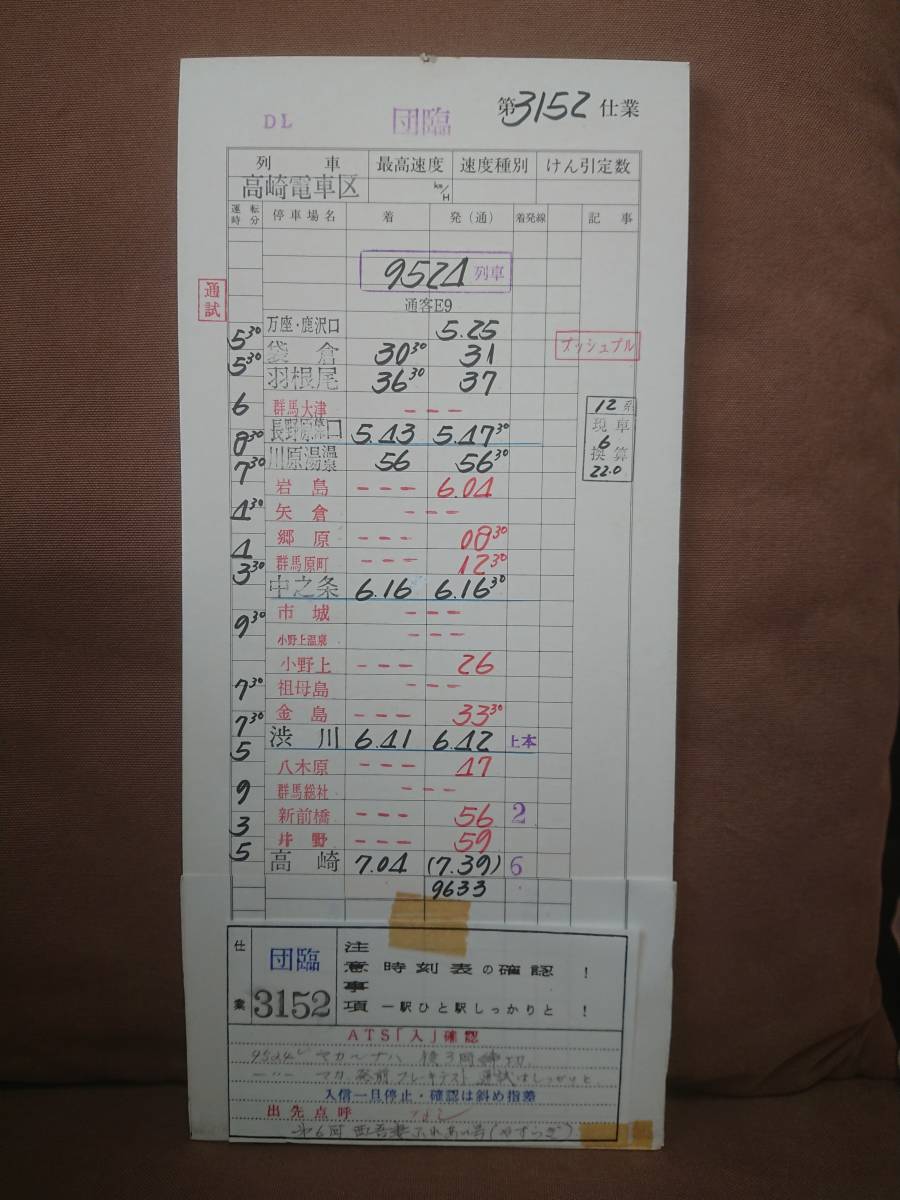 DL 団臨 第3152仕業
列車 最高速度 速度種別 けん引定数
高崎電車区 km/H
運転時分 停車場名 着 発(通) 着発線 記事
9524 列車
通試
通客E9
万座・鹿沢口 5.25
5 30 プッシュプル
袋倉 30 30 31
5 30
羽根尾 36 30 37
6 群馬大津 --- 12系
長野原草口 5.43 5.47 30 現車
8 30 6
川原湯温泉 56 56 30 換算
7 30 22.0
岩島 --- 6.04
4 30 矢倉 ---
郷原 --- 08 30
4 群馬原町 --- 12 30
3 30
中之条 6.16 6.16 30
9 30 市城 ---
小野上温泉 ---
小野上 --- 26
7 30 祖母島 ---
金島 --- 33 30
7 30
渋川 6.41 6.42 上本
5
八木原 --- 47
9 群馬総社 ---
新前橋 --- 56 2
3
井野 --- 59
5
高崎 7.04 (7.39) 6
9633
仕業 団臨 3152
注意事項 時刻表の確認 !
一駅ひと駅しっかりと !
ATS「入」確認
入信一旦停止・確認は斜め指差
出先点呼